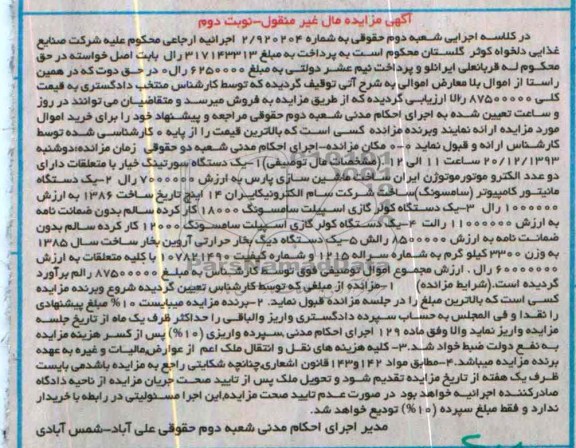 آگهی مزایده مال غیر منقول-نوبت دوم
در کلاسه اجرایی شعبه دوم حقوقی به شماره ۲/۹۲۰۲۰۴ اجرائیه ارجاعی محکوم علیه شرکت صنایع
غذایی دلخواه کوثر گلستان محکوم است به پرداخت به مبلغ ۳۱۷۱۴۳۳۱۳ ریال بابت اصل خواسته در حق
محکوم له قربانعلی ایرانلو و پرداخت نیم عشر دولتی به مبلغ ۶۲۵۰۰۰۰ ریال در حق دوت که در همین
راستا از اموال بلا معارض اموالی به شرح آتی توقیف گردیده که توسط کارشناس منتخب دادگستری به قیمت
کلی ۸۷۵۰۰۰۰۰ ریالا ارزیابی گردیده که از طریق مزایده به فروش میرسد و متقاضیان می توانند در روز
و ساعت تعیین شده به اجرای احکام مدنی شعبه دوم حقوقی مراجعه و پیشنهاد خود را برای خرید اموال
مورد مزایده ارائه نمایند وبرنده مزائده کسی است که بالاترین قیمت را از پایه کارشناسی شده توسط
کارشناس ارائه و قبول نماید مکان مزائده-اجرای احکام مدنی شعبه دو حقوقی زمان مزایده:دوشنبه
۲۰/۱۲/۱۳۹۳ ساعت ۱۱ الی ۱۲ (مشخصات مال توصیفی)۱-یک دستگاه سورتینگ خیار با متعلقات دارای
دو عدد الکترو موتورموتوژن ایران ساخت ماشین سازی پارس به ارزش ۷۰۰۰۰۰۰۰ ریال ۲-یک دستگاه
مانیتور کامپیوتر (سامسونگ)ساخت شرکت سام الکترونیکایران ۱۴ اینچ تاریخ ساخت ۱۳۸۶ به ارزش
۱۰۰۰۰۰۰ ریال ۳-یک دستگاه کولر گازی اسپیلت سامسونگ ۱۸۰۰۰ کار کرده سالم بدون ضمانت نامه
به ارزش ۱۱۰۰۰۰۰۰ رالت ۴-یک دستگاه کولر گازی اسپیلت سامسونگ ۱۲۰۰۰ کار کرده سالم بدون
ضمانت نامه به ارزش ۸۵۰۰۰۰۰ رالش ۵-یک دستگاه دیگ بخار حرارتی آروین بخار ساخت سال ۱۳۸۵
به وزن ۳۳۰۰ کیلو گرم به شماره سریال ۱۲۵ و شماره کیفیت ۱۰۷۸۲۱۴۹۰ با کلیه متعلقات به ارزش
۶۰۰۰۰۰۰۰ ریال . ارزش مجموع اموال توصیفی فوق توسط کارشناس به مبلغ ۸۷۵۰۰۰۰۰ رالم برآورد
گردیده است.(شرایط مزائده) ۱-مزائده از مبلغی که توسط کارشناس تعیین گردیده شروع وبرنده مزایده
کسی است که بالاترین مبلغ را در جلسه مزائده قبول نماید. ۲-برنده مزایده میبایست ۱۰% مبلغ پیشنهادی
را نقدا و فی المجلس به حساب سپرده دادگستری واریز والباقی را حداکثر ظرف یک ماه از تاریخ جلسه
مزایده واریز نماید والا وفق ماده ۱۲۹ اجرای احکام مدنی سپرده واریزی (۱۰%) پس از کسر هزینه مزایده
به نفع دولت ضبط خواد شد.۳- کلیه هزینه های نقل و انتقال ملک اعم از عوارض,مالیات و غیره به عهده
برنده مزایده میباشد.۴-مطابق مواد ۱۴۲ و۱۴۳ قانون اشعاری,چنانچه شکایتی راجع به مزایده باشدمی بایست
ظرف یک هفته از تاریخ مزایده تقدیم شود و تحویل ملک پس از تایید صحت جریان مزایده از ناحیه دادگاه
صادرکننده اجرائیه خواهد بود در صورت عدم تایید صحت مزایده,این اجرا مسئولیتی در رابطه با خریدار
ندارد و فقط مبلغ سپرده (۱۰%) تودیع خواهد شد.
مدیر اجرای احکام مدنی شعبه دوم حقوقی علی آباد-شمس آبادی